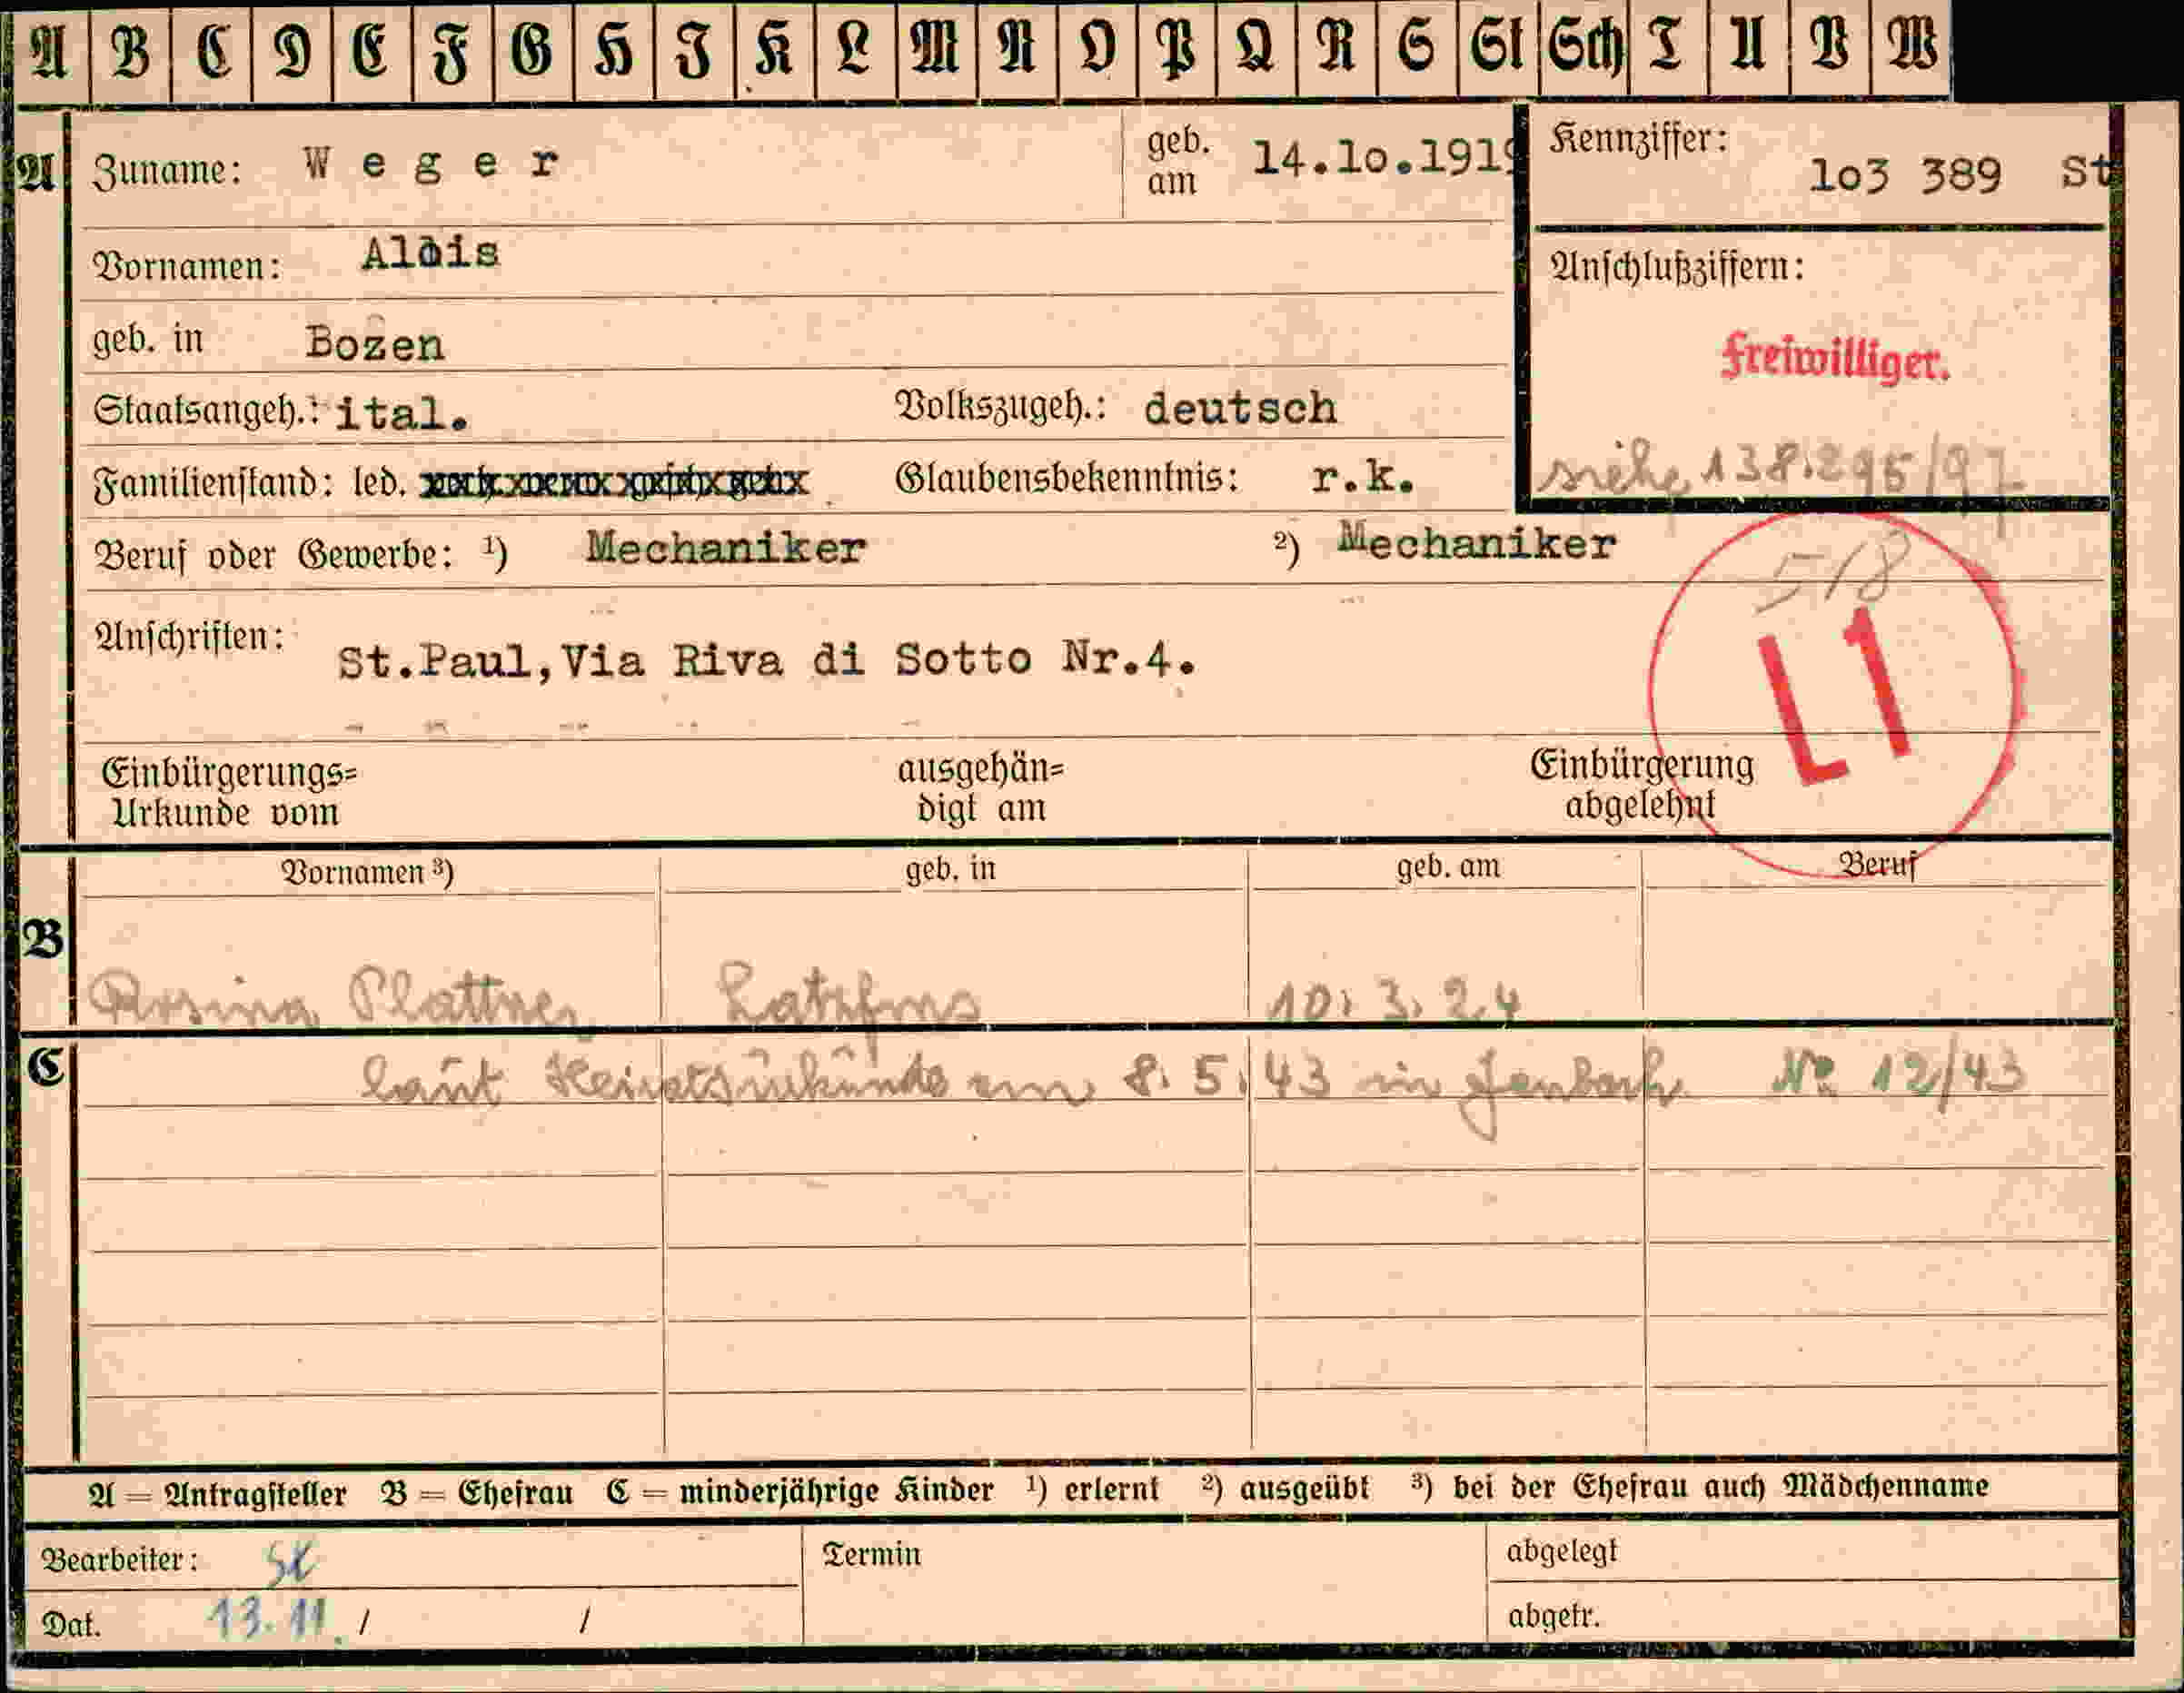 A B C D E F G H J K L M N O P Q R S St Sch T U V W
A Zuname: Weger geb. am 14.1o.1919 Kennziffer: 1o3 389 St
Vornamen: Alois Anschlußziffern:
geb. in Bozen Freiwilliger.
Staatsangeh.: ital. Volkszugeh.: deutsch
siehe 138.295/97
Familienstand: led. Glaubensbekenntnis: r.k.
Beruf oder Gewerbe: ¹) Mechaniker ²) Mechaniker
5/8
L1
Anschriften: St.Paul,Via Riva di Sotto Nr.4.
Einbürgerungs= ausgehän= Einbürgerung
Urkunde vom digt am abgelehnt
Vornamen ³) geb. in geb. am Beruf
B
Rosina Plattner Latzfons 10. 3. 24
C laut Heiratsurkunde am 8. 5. 43 in Jenbach No 12/43
A = Antragsteller B = Ehefrau C = minderjährige Kinder ¹) erlernt ²) ausgeübt ³) bei der Ehefrau auch Mädchenname
Bearbeiter: Termin abgelegt
Dat. 13.11. / / abgetr.